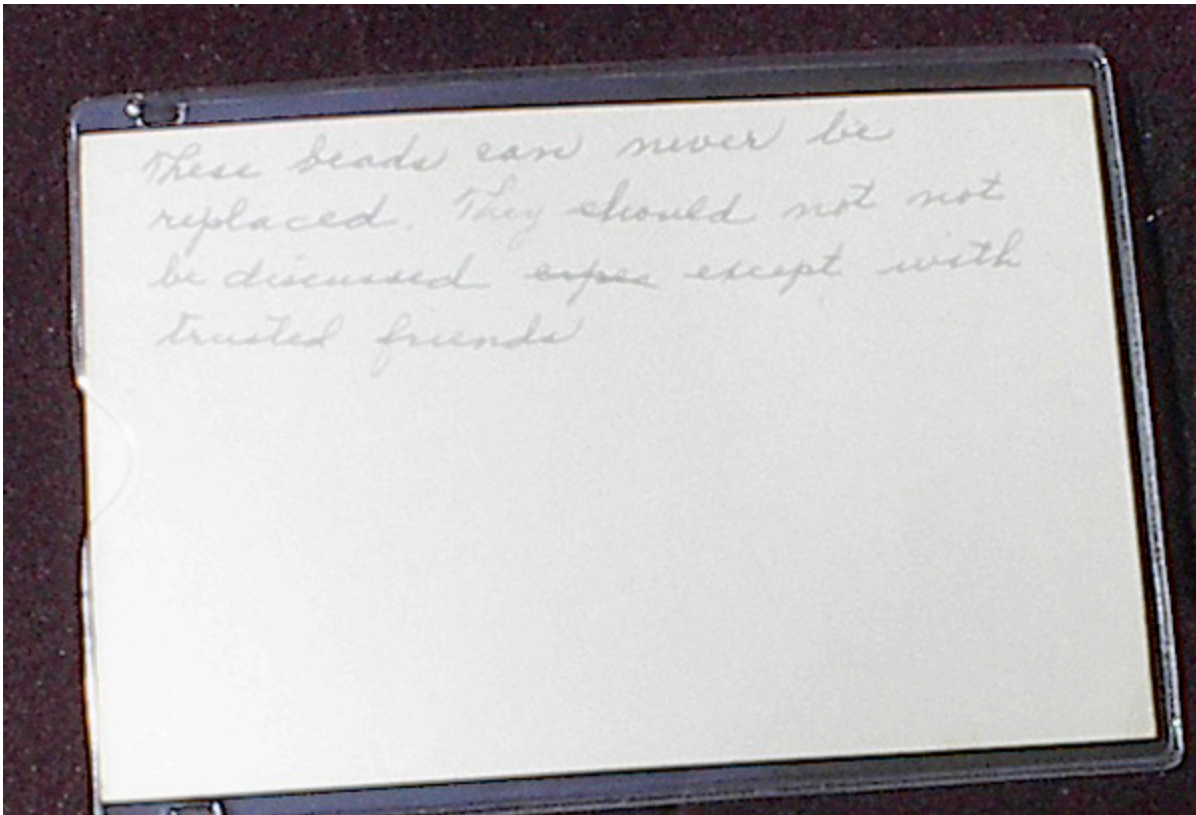 These beads can never be
replaced. They should not not
be discussed except with
trusted friends